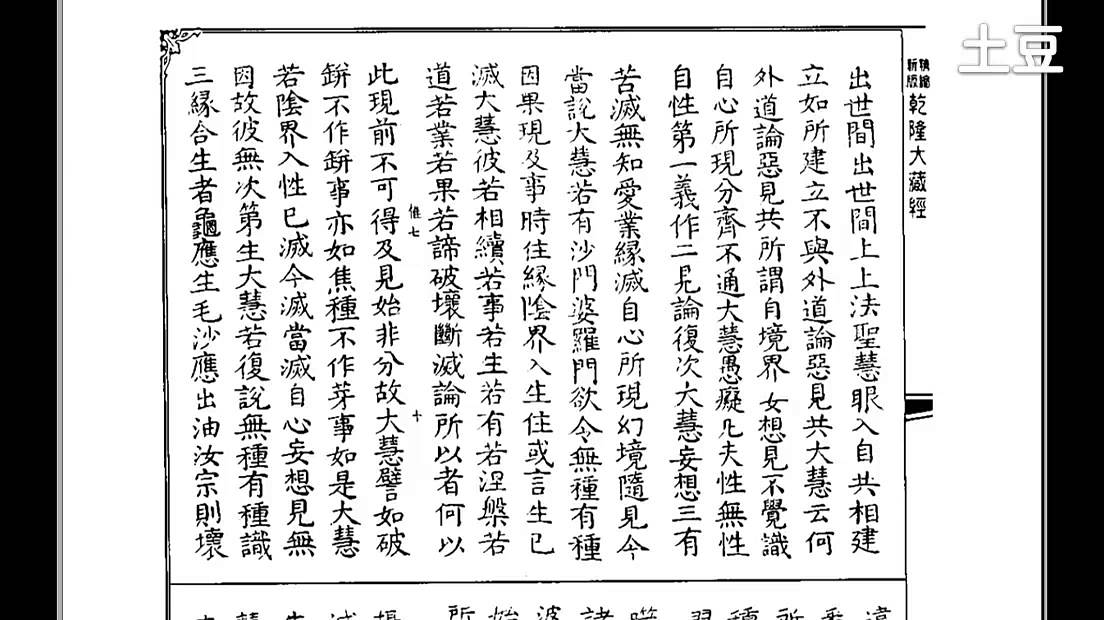 土豆
精縮
新版
乾隆大藏經
出世間出世間上上法聖慧眼入自共相建
立如所建立不與外道論惡見共大慧云何
外道論惡見共所謂自境界妄想見不覺識
自心所現分齊不通大慧愚癡凡夫性無性
自性第一義作二見論復次大慧妄想三有
苦滅無知愛業緣滅自心所現幻境隨見今
當說大慧若有沙門婆羅門欲令無種有種
因果現及事時住緣陰界入生住或言生已
滅大慧彼若相續若事若生若有若涅槃若
道若業若果若諦破壞斷滅論所以者何以
惟七
十
此現前不可得及見始非分故大慧譬如破
缾不作缾事亦如焦種不作芽事如是大慧
若陰界入性已滅今滅當滅自心妄想見無
因故彼無次第生大慧若復說無種有種識
三緣合生者龜應生毛沙應出油汝宗則壞